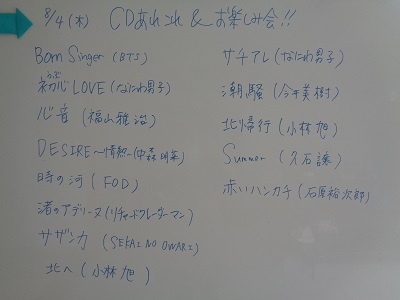 8/4(木) CDあれこれ&お楽しみ会!!
Born Singer (BTS)
初心LOVE(なにわ男子)
うぶ
心音 (福山雅治)
DESIRE~情熱~(中森明菜)
時の河 (FOD)
渚のアデリーヌ(リチャードクレーダーマン)
サザンカ (SEKAI NO OWARI)
北へ (小林旭)
サチアレ(なにわ男子)
潮騒 (今井美樹)
北帰行 (小林旭)
Summer (久石譲)
赤いハンカチ (石原裕次郎)